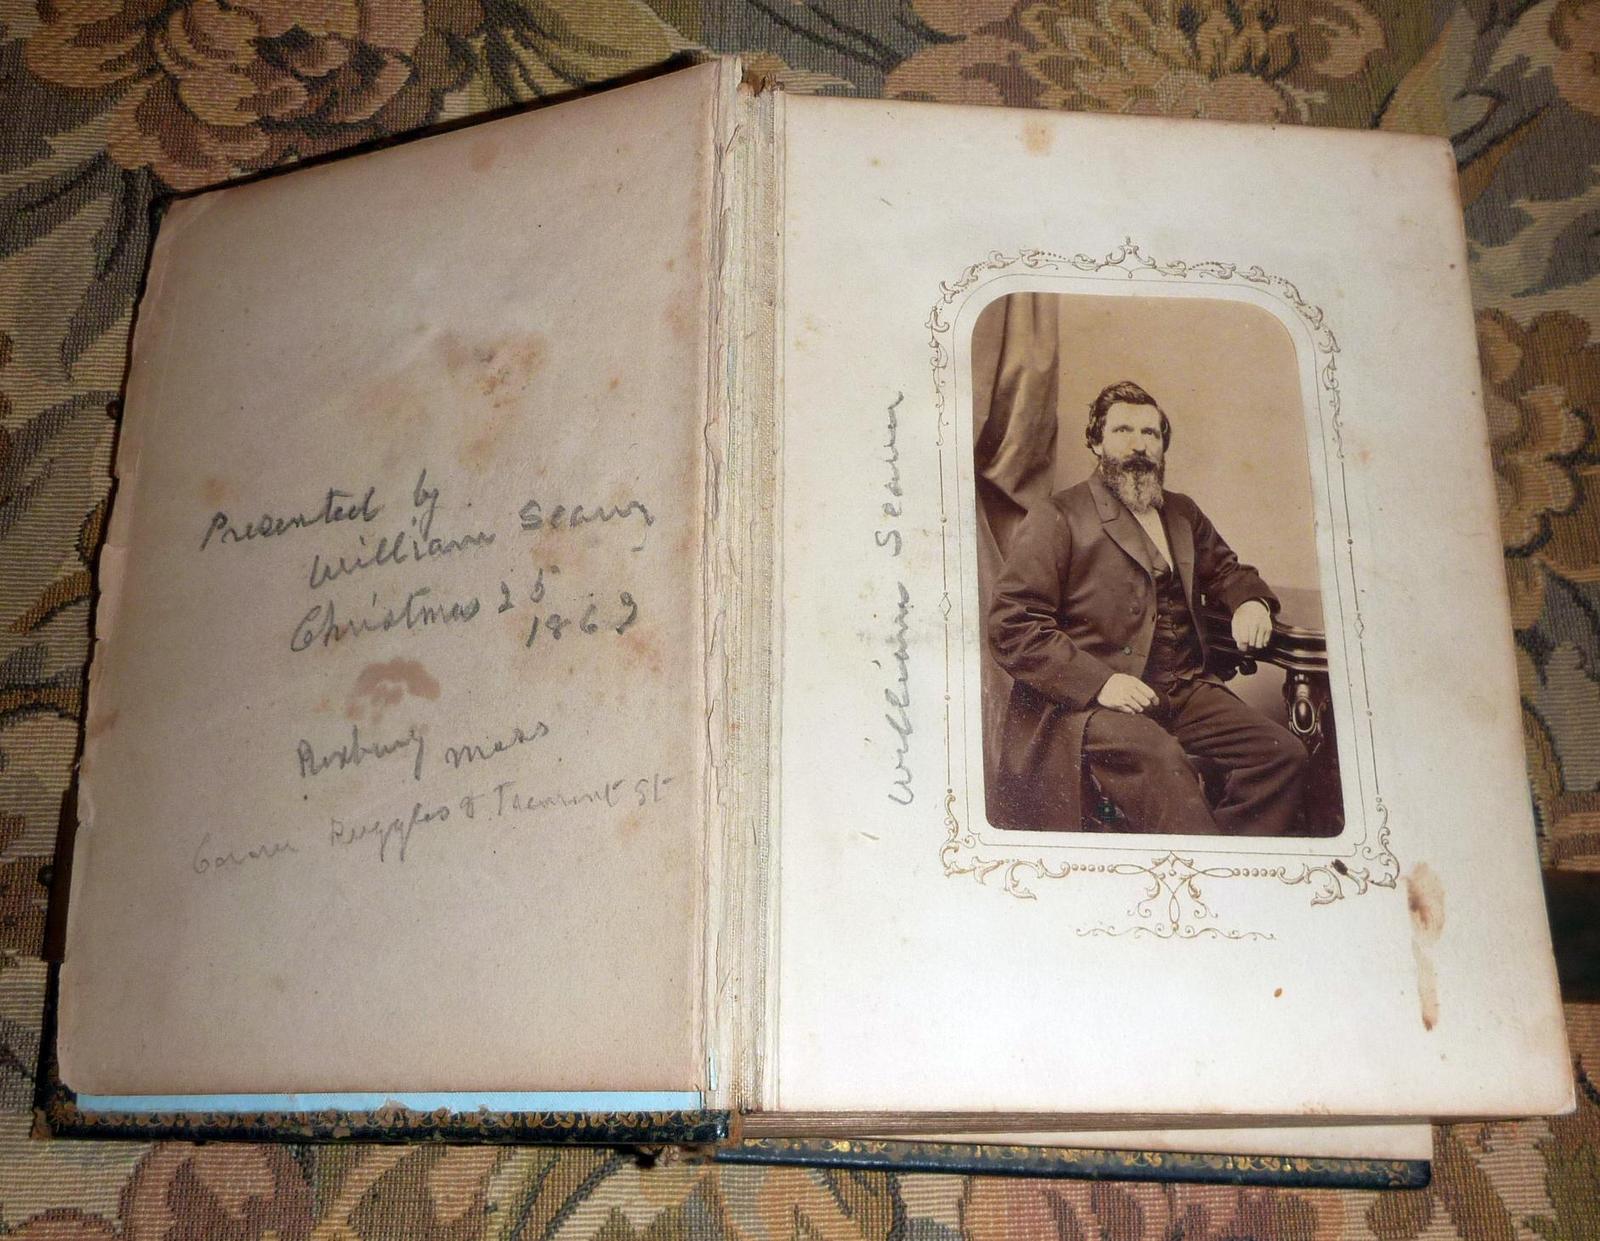 Presented by
William Seaver
Christmas 25
Roxbury Mass
Corner Ruggles & Tremont St
William Seaver